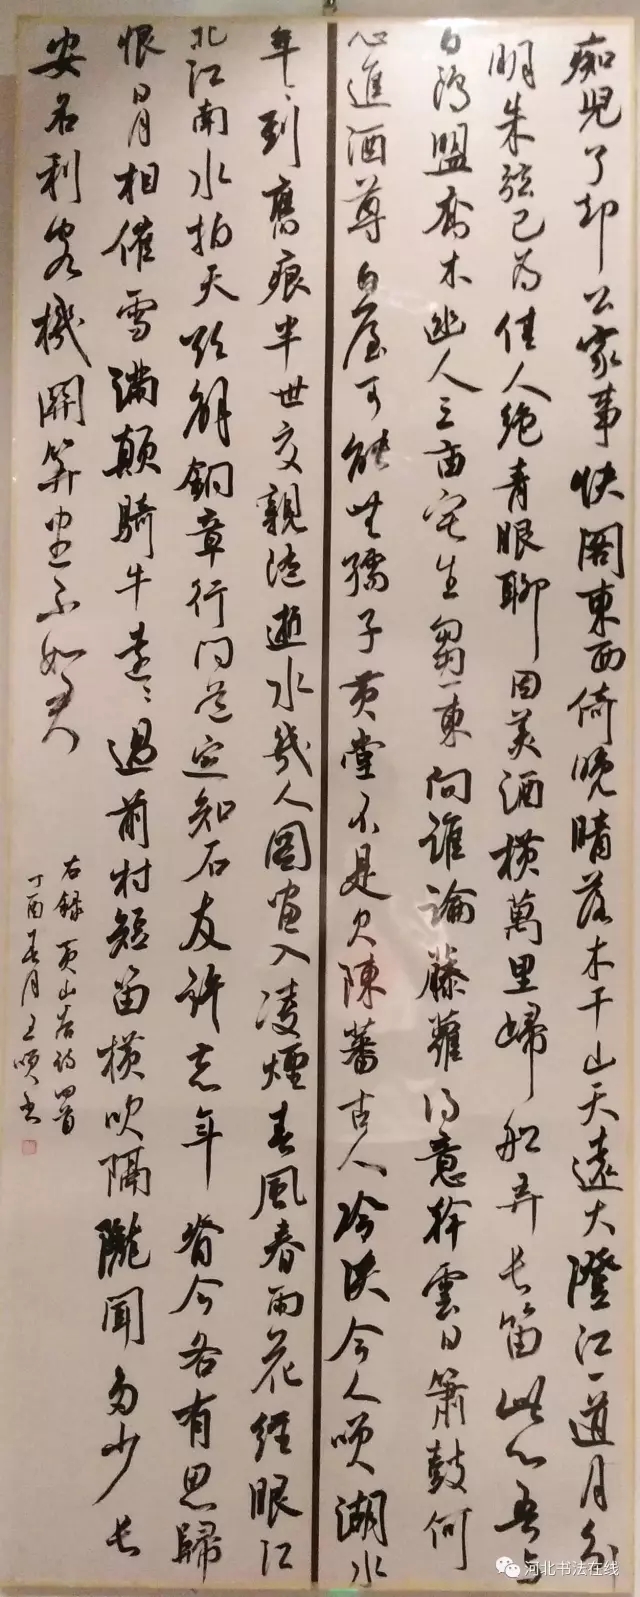 痴児了却公家事快阁東西倚晚晴落木千山天遠大澄江一道月分
明朱弦已为佳人绝青眼聊因美酒横萬里歸船弄长笛此心吾与
白鸥盟喬木幽人三亩宅生芻一束向誰論藤蘿得意幹雲日箫鼓何
心進酒尊白屋可能无孺子黄堂不是欠陳蕃古人冷淡今人笑湖水
年々到舊痕半世交親随逝水幾人图画入凌煙春風春雨花经眼江
北江南水拍天欲解铜章行问道定知石友许忘年脊令各有思歸
恨日月相催雪满颠騎牛遠々過前村短笛横吹隔隴聞多少长
安名利客機関算尽不如君
右録黄山谷诗四首
丁酉春月王顺书
河北书法在线